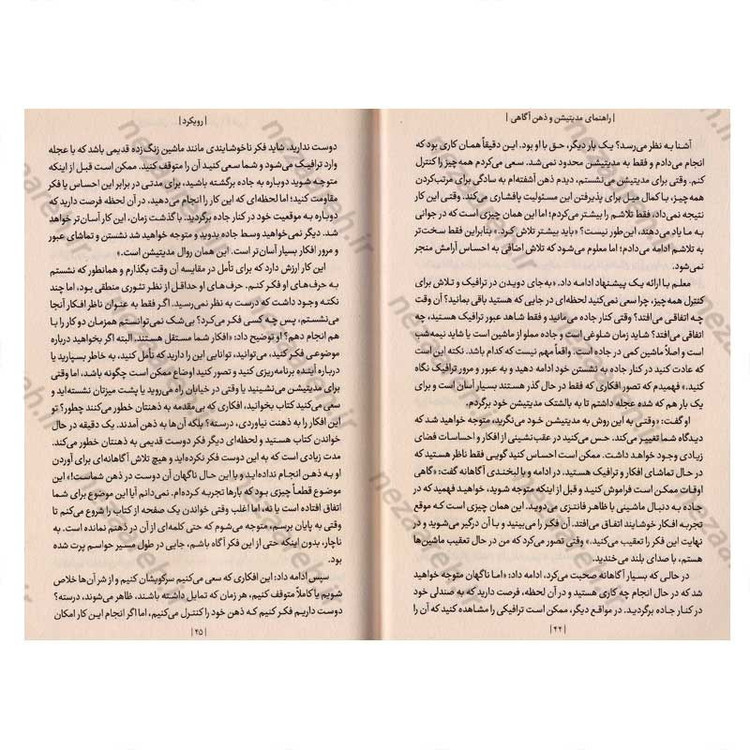 | راهنمای مدیتیشن و ذهن آگاهی |
آشنا به نظر می‌رسد؟ یک بار دیگر، حق با او بود. این دقیقاً همان کاری بود که
انجام می‌دادم و فقط به مدیتیشن محدود نمی‌شد. سعی می‌کردم همه‌چیز را کنترل
کنم. وقتی برای مدیتیشن می‌نشستم، دیدم ذهن آشفته‌ام به سادگی برای مرتب‌کردن
همه‌چیز، با کمال میل برای پذیرفتن این مسئولیت پافشاری می‌کند. وقتی این کار
نتیجه نمی‌داد، فقط تلاشم را بیشتر می‌کردم؛ اما این همان چیزی است که در جوانی
به ما یاد می‌دهند، این‌طور نیست؟ «باید بیشتر تلاش کرد.» بنابراین فقط سخت‌تر
به تلاشم ادامه می‌دادم؛ اما معلوم می‌شود که تلاش اضافی به احساس آرامش منجر
نمی‌شود.
معلم با ارائه یک پیشنهاد ادامه داد. «به‌جای دویدن در ترافیک و تلاش برای
کنترل همه‌چیز، چرا سعی نمی‌کنید لحظه‌ای در جایی که هستید باقی بمانید؟ آن وقت
چه اتفاقی می‌افتد؟ وقتی کنار جاده می‌مانید و فقط شاهد عبور ترافیک هستید، چه
اتفاقی می‌افتد؟ شاید زمان شلوغی است و جاده مملو از ماشین است یا شاید نیمه‌شب
است و اصلاً ماشین کمی در جاده است. واقعاً مهم نیست که کدام باشد. نکته این است
که عادت کنید در کنار جاده به نشستن خود ادامه دهید و به عبور و مرور ترافیک نگاه
کنید.» فهمیدم که تصور افکاری که فقط در حال گذر هستند بسیار آسان است و برای
یک بار هم که شده عجله داشتم تا به بالشتک مدیتیشن خود برگردم.
او گفت: «وقتی به این روش به مدیتیشن خود می‌نگرید، متوجه خواهید شد که
دیدگاه شما تغییر می‌کند. حس می‌کنید در عقب‌نشینی از افکار و احساسات فضای
زیادی وجود خواهد داشت. ممکن است احساس کنید گویی فقط ناظر هستید که
در حال تماشای افکار و ترافیک هستید. در ادامه و با لبخندی آگاهانه گفت: «گاهی
اوقات ممکن است فراموش کنید و قبل از اینکه متوجه شوید، خواهید فهمید که در
جاده به دنبال ماشینی با ظاهر فانتزی می‌دوید. این همان چیزی است که موقع
تجربه افکار خوشایند اتفاق می‌افتد. آن فکر را می‌بینید و با آن درگیر می‌شوید و در
نهایت این فکر را تعقیب می‌کنید.» وقتی تصور می‌کرد که من در حال تعقیب ماشین‌ها
هستم، با صدای بلند می‌خندید.
در حالی که بسیار آگاهانه صحبت می‌کرد، ادامه داد: «اما ناگهان متوجه خواهید
شد که در حال انجام چه کاری هستید و در آن لحظه، فرصت دارید که به صندلی خود
در کنار جاده برگردید. در مواقع دیگر، ممکن است ترافیکی را مشاهده کنید که آن را
| ۴۴ |
| رویکرد |
دوست ندارید. شاید فکر ناخوشایندی مانند ماشین زنگ‌زده قدیمی باشد که با عجله
وارد ترافیک می‌شود و شما سعی کنید آن را متوقف کنید. ممکن است قبل از اینکه
متوجه شوید دوباره به جاده برگشته باشید، برای مدتی در برابر این احساس یا فکر
مقاومت کنید؛ اما لحظه‌ای که این کار را انجام می‌دهید، در آن لحظه فرصت دارید که
دوباره به موقعیت خود در کنار جاده برگردید. با گذشت زمان، این کار آسان‌تر خواهد
شد. دیگر نمی‌خواهید وسط جاده بدوید و متوجه خواهید شد نشستن و تماشای عبور
و مرور افکار بسیار آسان‌تر است. این همان روال مدیتیشن است.»
این کار ارزش دارد که برای تأمل در مقایسه آن وقت بگذارم و همانطور که نشستم
به حرف‌های او فکر کنم. حرف‌های او حداقل از نظر تئوری منطقی بود، اما چند
نکته وجود داشت که درست به نظر نمی‌رسید. اگر فقط به عنوان ناظر افکار آنجا
می‌نشستم، پس چه کسی فکر می‌کرد؟ بی‌شک نمی‌توانستم همزمان دو کار را با
هم انجام دهم؟ او توضیح داد: «افکار شما مستقل هستند. البته اگر بخواهید درباره
موضوعی فکر کنید، می‌توانید، توانایی این را دارید که تأمل کنید، به خاطر بسپارید یا
درباره آینده برنامه‌ریزی کنید و تصور کنید اوضاع ممکن است چگونه باشد، اما وقتی
برای مدیتیشن می‌نشینید یا وقتی در خیابان راه می‌روید یا پشت میزتان نشسته‌اید و
سعی می‌کنید کتاب بخوانید، افکاری که بی‌مقدمه به ذهنتان خطور می‌کنند چطور؟ تو
این افکار را به ذهنت نیاوردی، درسته؟ بلکه آن‌ها به ذهن آمدند. یک دقیقه در حال
خواندن کتاب هستید و لحظه‌ای دیگر فکر دوست قدیمی به ذهنتان خطور می‌کند.
مدت زیادی است که به این دوست فکر نکرده‌اید و هیچ تلاش آگاهانه‌ای برای آوردن
او به ذهن انجام نداده‌اید و با این حال ناگهان آن دوست در ذهن شماست!» این
موضوع قطعاً چیزی بود که بارها تجربه کرده‌ام. نمی‌دانم آیا این موضوع برای شما
اتفاق افتاده است یا نه، اما اغلب وقتی خواندن یک صفحه از کتاب را شروع می‌کنم تا
وقتی به پایان برسم، متوجه می‌شوم که حتی کلمه‌ای از آن در ذهنم نمانده است. به
ناچار، بدون اینکه حتی از این فکر آگاه باشم، جایی در طول مسیر حواسم پرت شده
بود.
سپس ادامه داد: این افکاری که سعی می‌کنیم سرکوبشان کنیم و از شر آن‌ها خلاص
شویم یا کاملاً متوقف کنیم، هر زمان که تمایل داشته باشند، ظاهر می‌شوند، درسته؟
دوست داریم فکر کنیم که ذهن خود را کنترل می‌کنیم، اما اگر انجام این کار امکان
| ۴۵ |
nezaaheh.ir